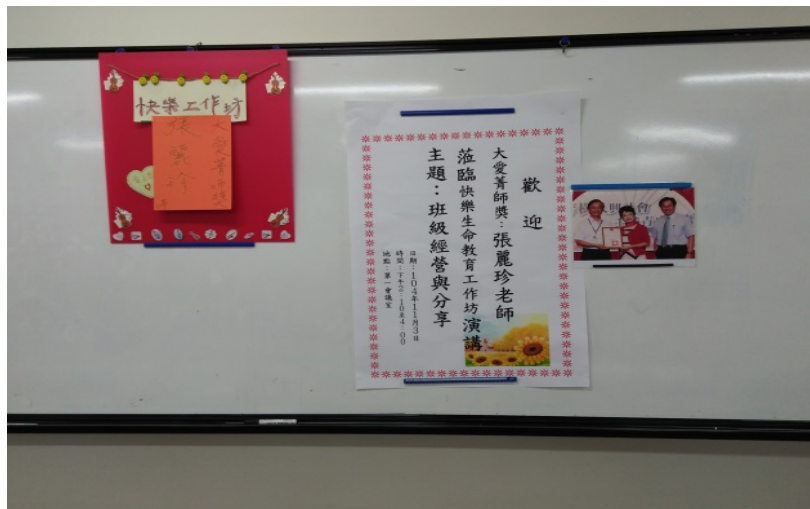 快樂工作坊
大愛菁師獎
張麗珍
歡迎
大愛菁師獎：張麗珍老師
蒞臨快樂生命教育工作坊演講
主題：班級經營與分享
日期：104年11月3日
時間：下午2：10至4：00
地點：第一會議室